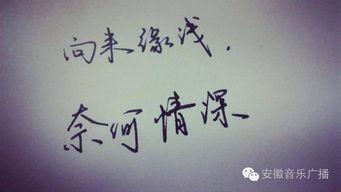 向来缘浅，
奈何情深
安徽音乐广播